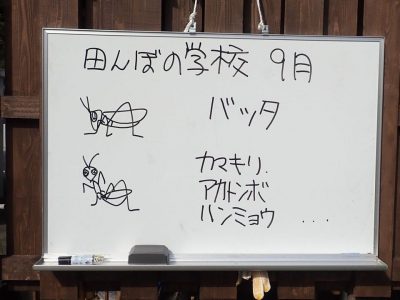 田んぼの学校 9月
バッタ
カマキリ.
アカトンボ
ハンミョウ ...